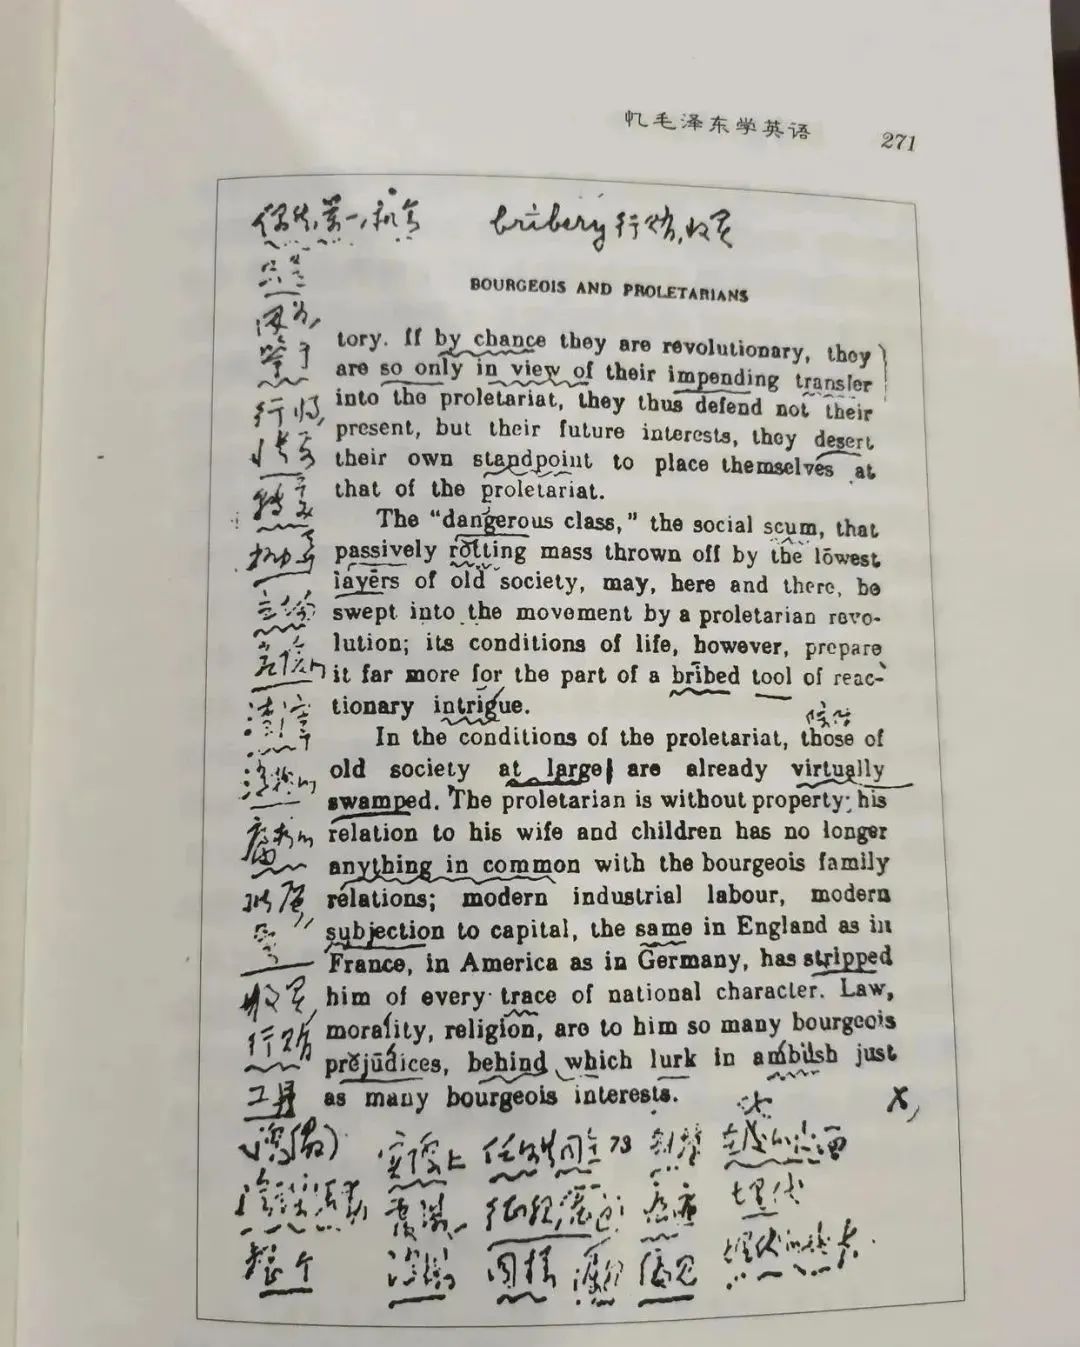 忆毛泽东学英语 271
偶然,万一,机会
bribery 行贿,收买
只是
因为,
鉴于
行将,
转变
抛弃
立场
渣滓
腐朽的
收买,
行贿
工具
BOURGEOIS AND PROLETARIANS
tory. If by chance they are revolutionary, they
are so only in view of their impending transfer
into the proletariat, they thus defend not their
present, but their future interests, they desert
their own standpoint to place themselves at
that of the proletariat.
The “dangerous class,” the social scum, that
passively rotting mass thrown off by the lowest
layers of old society, may, here and there, be
swept into the movement by a proletarian revo-
lution; its conditions of life, however, prepare
it far more for the part of a bribed tool of reac-
tionary intrigue.
In the conditions of the proletariat, those of
old society at large are already virtually
swamped. The proletarian is without property; his
relation to his wife and children has no longer
anything in common with the bourgeois family
relations; modern industrial labour, modern
subjection to capital, the same in England as in
France, in America as in Germany, has stripped
him of every trace of national character. Law,
morality, religion, are to him so many bourgeois
prejudices, behind which lurk in ambush just
as many bourgeois interests.
实际上 任何共同 73
埋伏
整个 同样 偏见